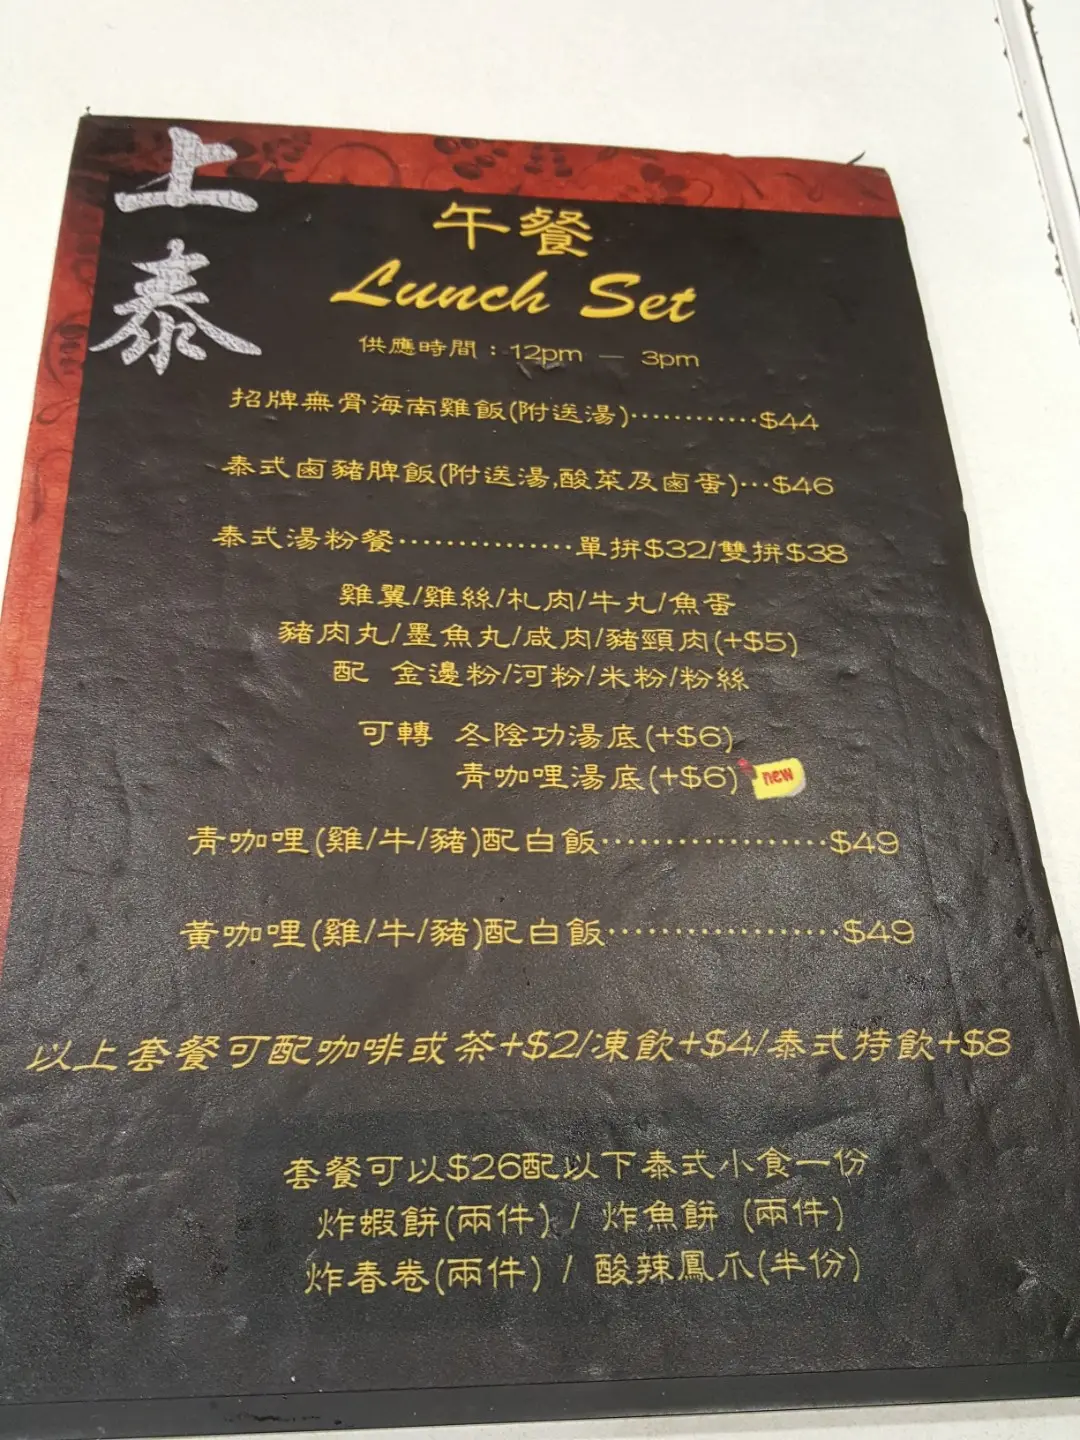 上泰
午餐
Lunch Set
供應時間：12pm — 3pm
招牌無骨海南雞飯(附送湯)············$44
泰式鹵豬脾飯(附送湯,酸菜及鹵蛋)···$46
泰式湯粉餐···············單拼$32/雙拼$38
雞翼/雞絲/札肉/牛丸/魚蛋
豬肉丸/墨魚丸/咸肉/豬頸肉(+$5)
配 金邊粉/河粉/米粉/粉絲
可轉 冬陰功湯底(+$6)
青咖哩湯底(+$6) new
青咖哩(雞/牛/豬)配白飯···················$49
黃咖哩(雞/牛/豬)配白飯···················$49
以上套餐可配咖啡或茶+$2/凍飲+$4/泰式特飲+$8
套餐可以$26配以下泰式小食一份
炸蝦餅(兩件) / 炸魚餅 (兩件)
炸春卷(兩件) / 酸辣鳳爪(半份)